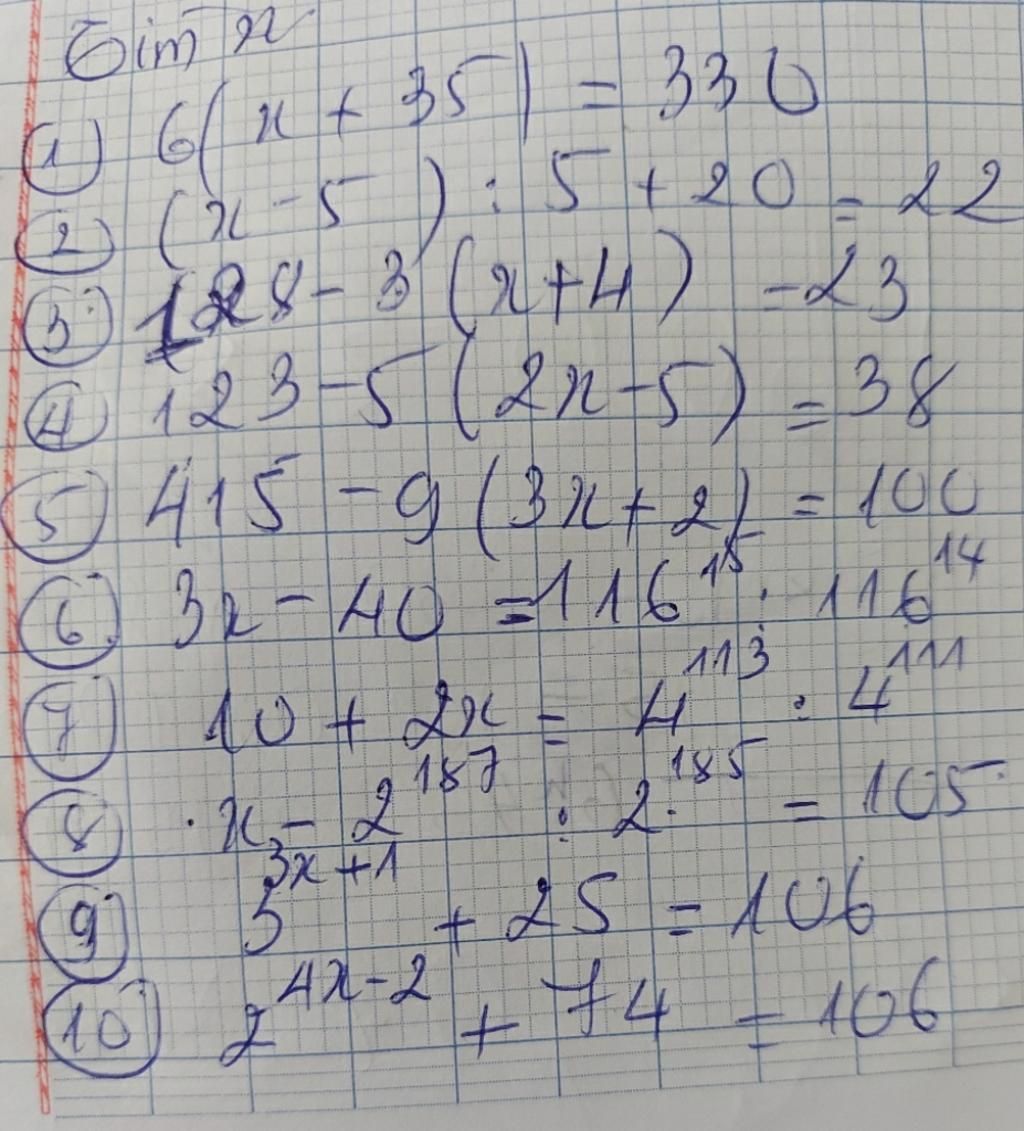 Tìm x
① 6(x + 35) = 330
② (x - 5) : 5 + 20 = 22
③ 128 - 3(x+4) = 23
④ 123 - 5(2x - 5) = 38
⑤ 415 - 9(3x + 2) = 100
⑥ 3x - 40 = 116¹⁵ : 116¹⁴
⑦ 10 + 2x = 4¹¹³ : 4¹¹¹
⑧ x - 2¹⁸⁷ : 2¹⁸⁵ = 105
⑨ 3³ˣ⁺¹ + 25 = 106
⑩ 2⁴ˣ⁻² + 74 = 106